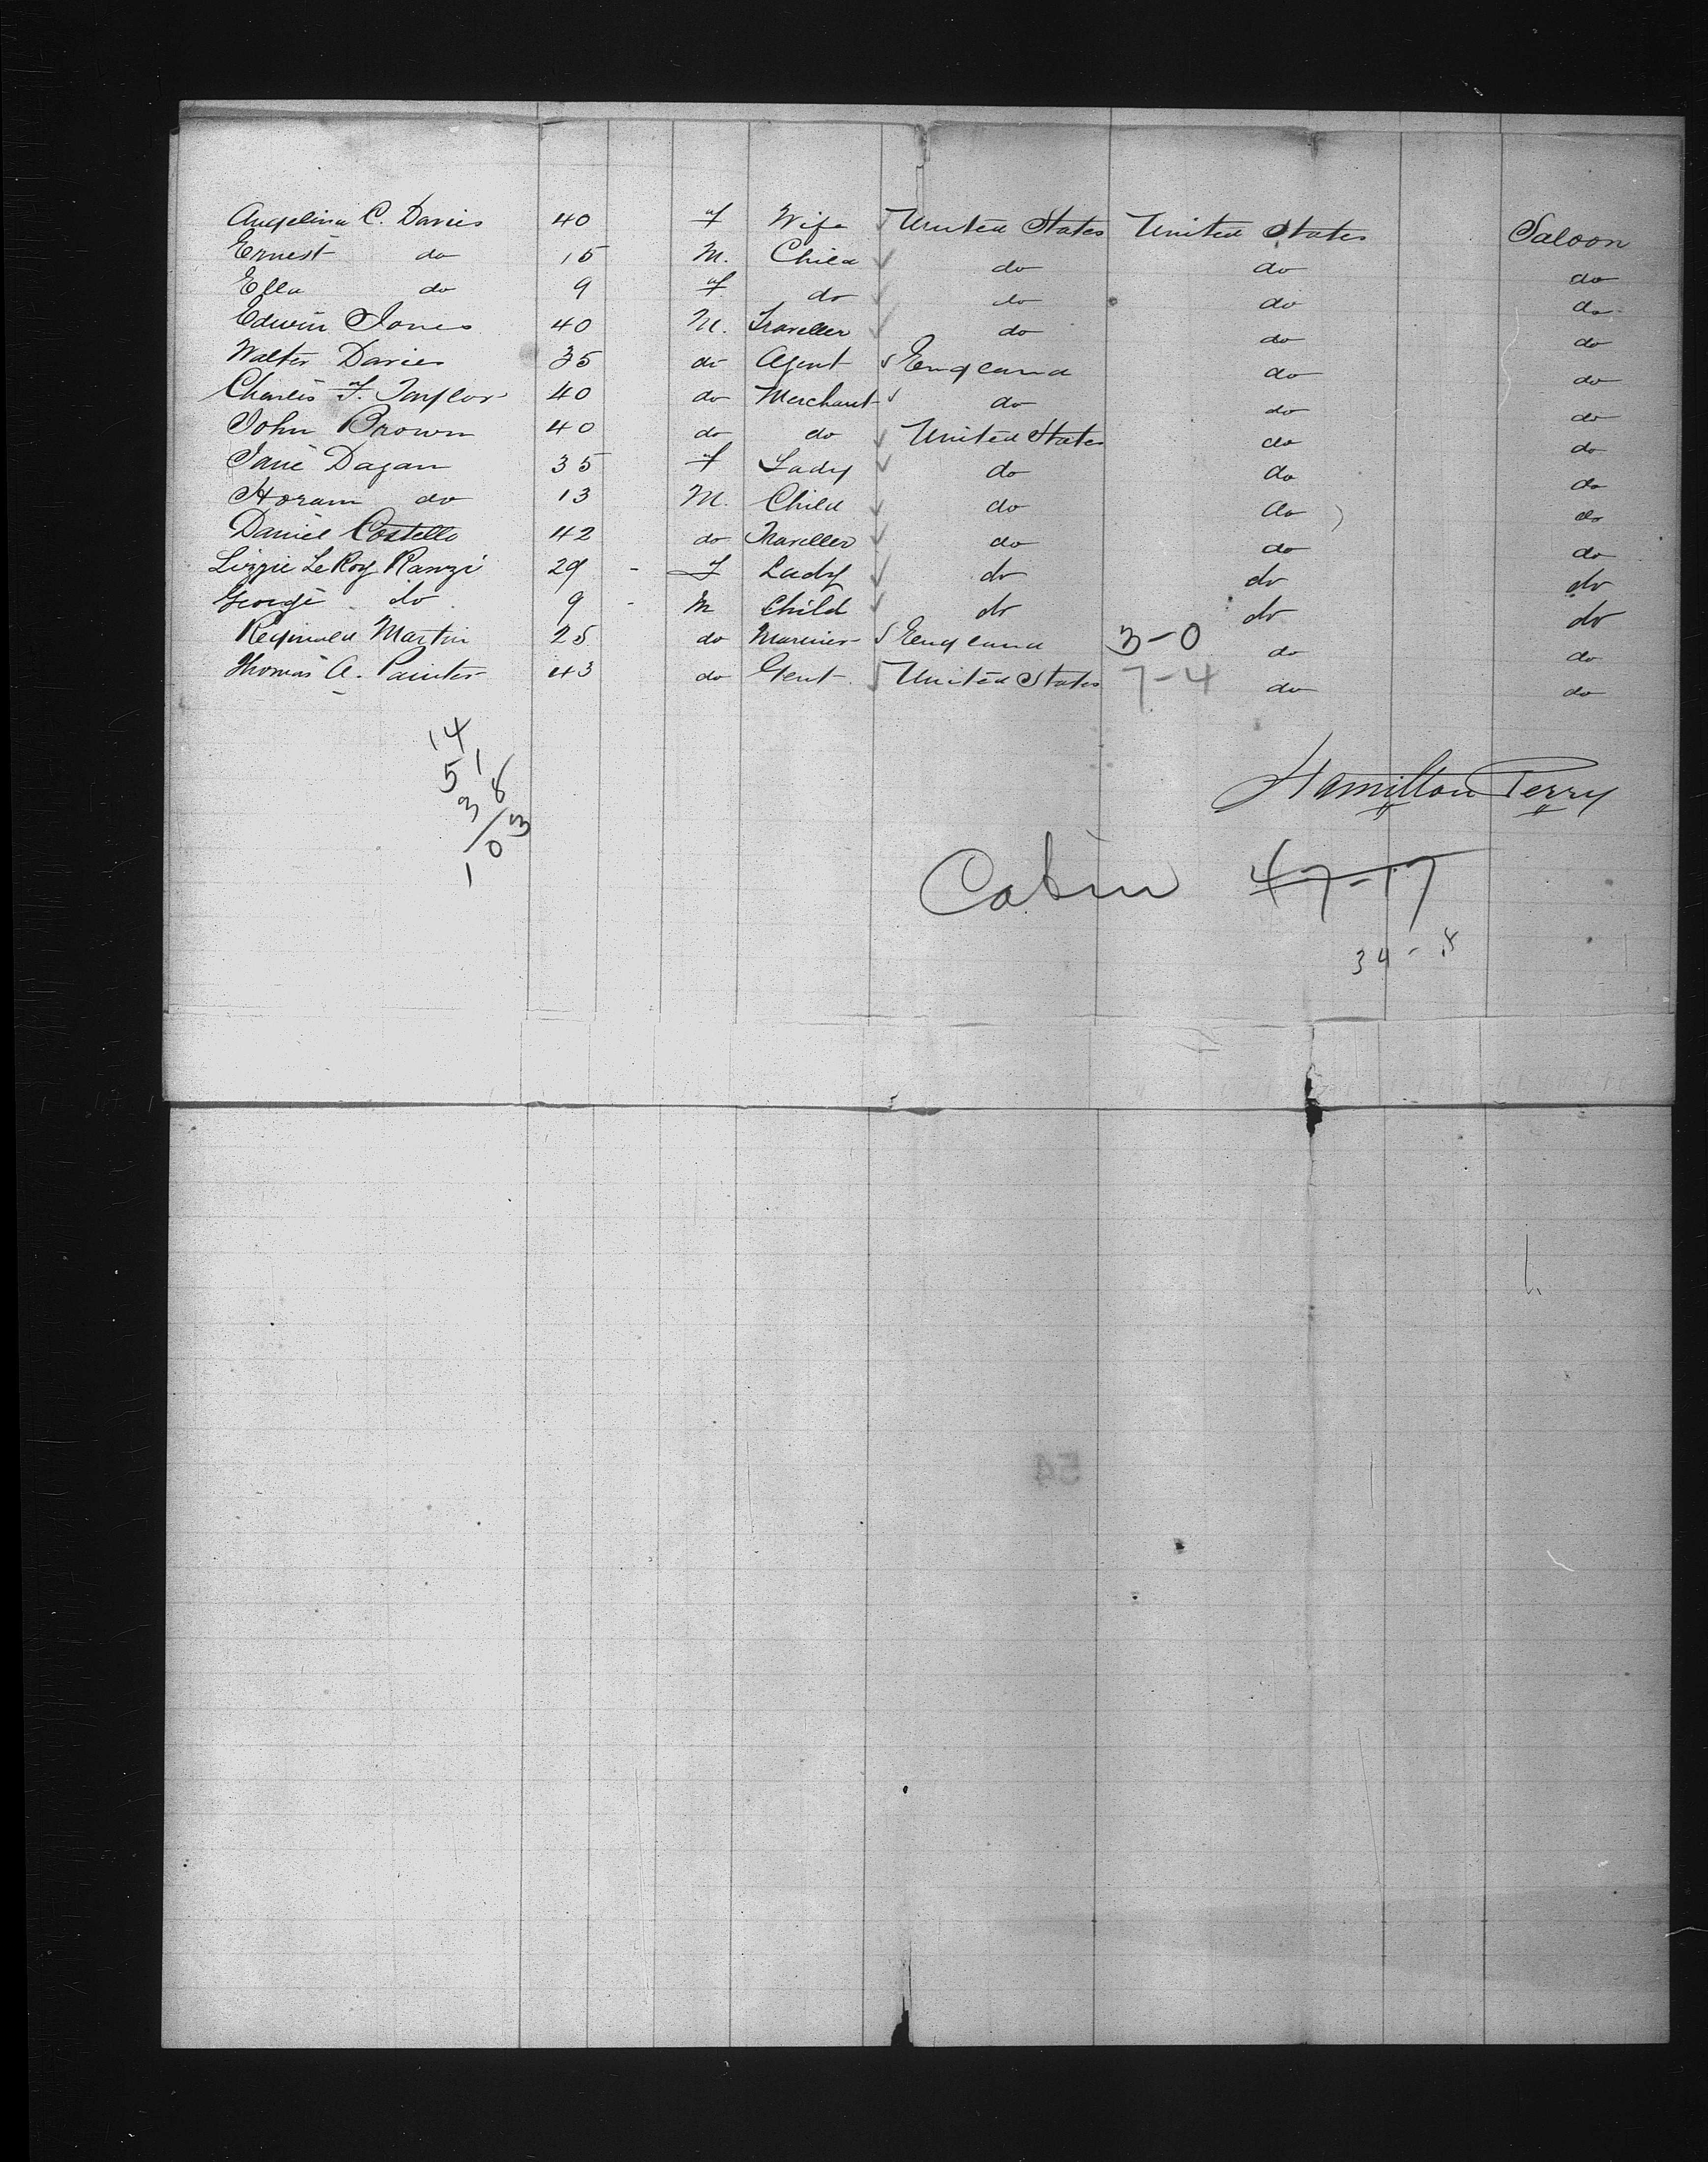 Angelina C. Davies 40 f Wife United States United States Saloon
Ernest do 15 M. Child do do do
Ella do 9 f do do do do
Edwin Jones 40 M. Traveller do do do
Walter Davies 35 do Agent England do do
Charles F. Taylor 40 do Merchant do do do
John Brown 40 do do United States do do
Jane Dagan 35 f Lady do do do
Horam do 13 M. Child do do do
Daniel Costello 42 do Traveller do do do
Lizzie LeRoy Ranzi 29 - f Lady do do do
George do 9 - M Child do do do
Reginald Martin 25 do Mariner England 3-0 do do
Thomas A. Painter 43 do Gent United States 7-4 do do
14
51
38
103
Hamilton Perry
Cabin 47-17
34-8
54